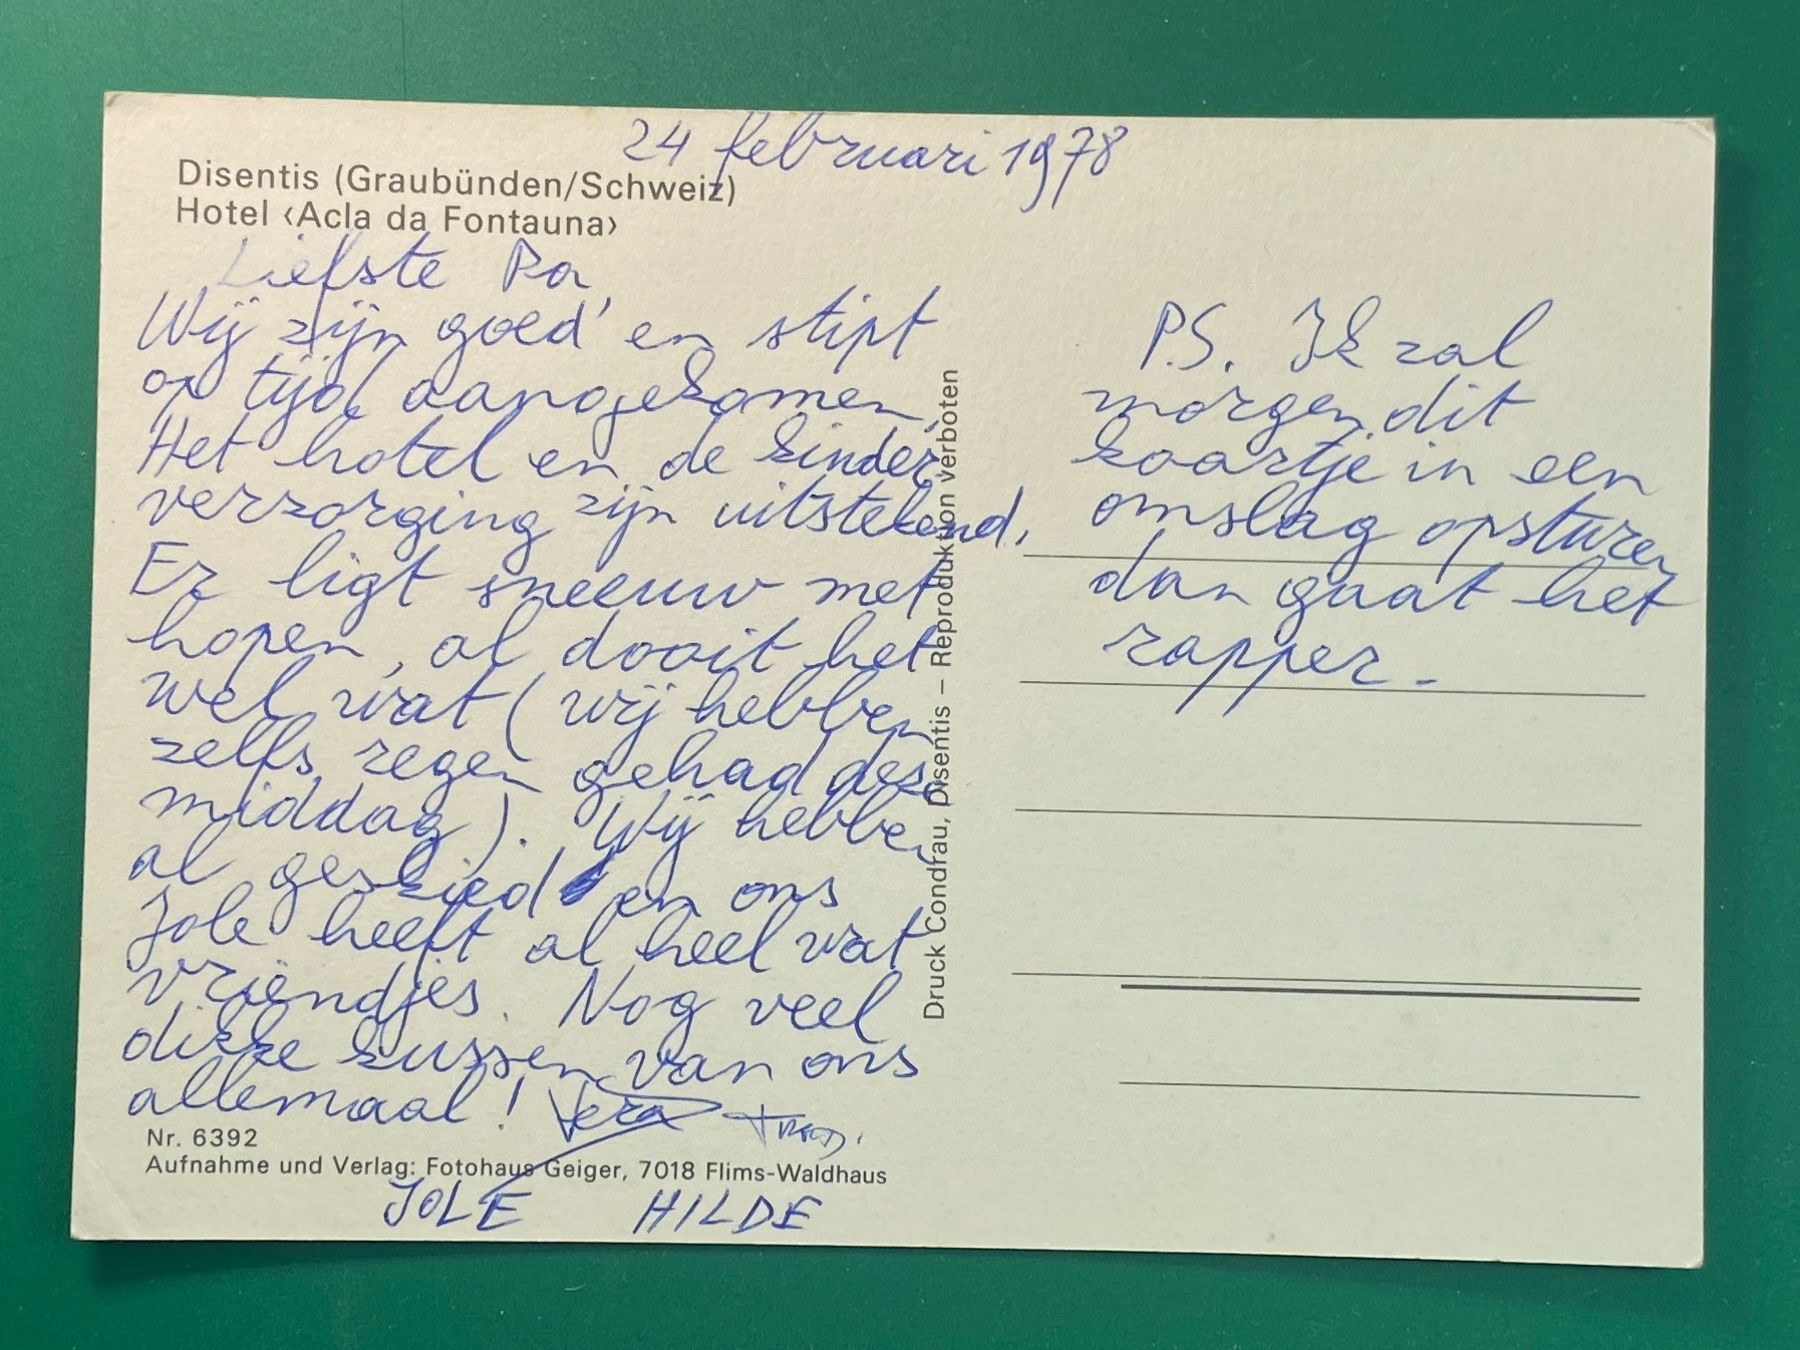 24 februari 1978
Disentis (Graubünden/Schweiz)
Hotel ‹Acla da Fontauna›
Liefste Pa,
Wij zijn goed en stipt
op tijd aangekomen,
Het hotel en de kinder
verzorging zijn uitstekend.
Er ligt sneeuw met
hopen, al dooit het
wel wat (wij hebben
zelfs regen gehad deze
middag). Wij hebben
al geskied en ons
Jole heeft al heel wat
vriendjes. Nog veel
dikke kussen van ons
allemaal! Vera
Nr. 6392
Aufnahme und Verlag: Fotohaus Geiger, 7018 Flims-Waldhaus
JOLE HILDE
Druck Condrau, Disentis – Reproduktion verboten
P.S. Ik zal
morgen dit
kaartje in een
omslag opsturen
dan gaat het
rapper.